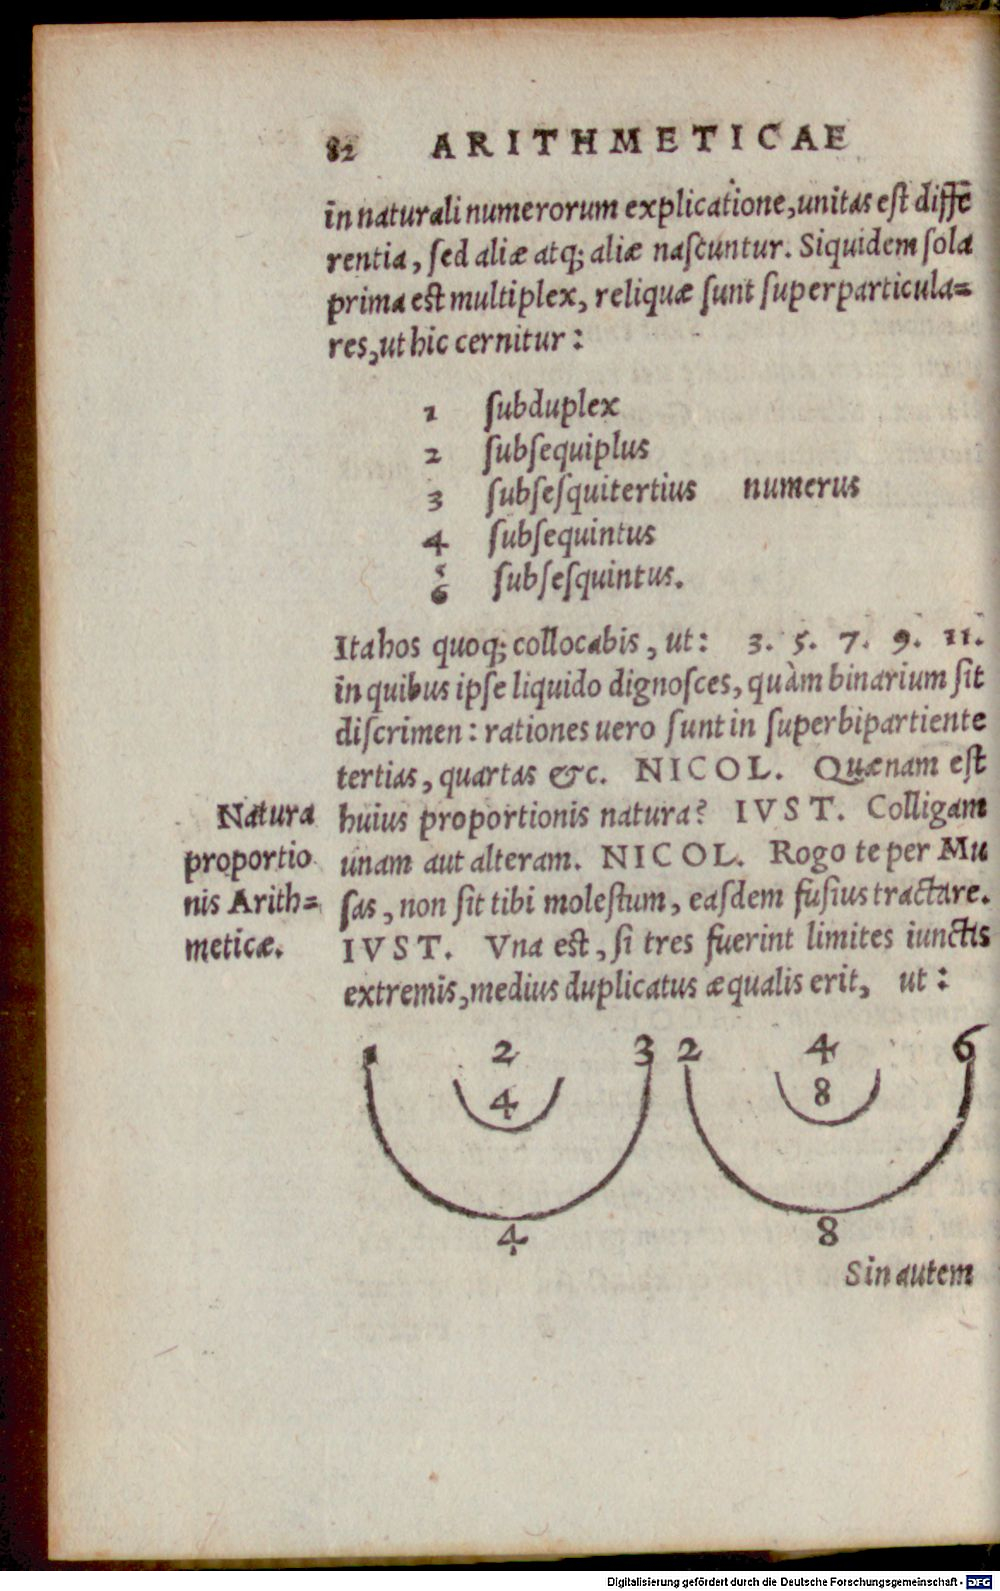 82 ARITHMETICAE
in naturali numerorum explicatione, unitas est diffē
rentia, sed aliæ atq; aliæ nascuntur. Siquidem sola
prima est multiplex, reliquæ sunt superparticula=
res, ut hic cernitur:
1 subduplex
2 subsequiplus
3 subsesquitertius numerus
4 subsequintus
5
6 subsesquintus.
Ita hos quoq; collocabis, ut: 3. 5. 7. 9. 11.
in quibus ipse liquido dignosces, quàm binarium sit
discrimen: rationes uero sunt in superbipartiente
tertias, quartas &c. NICOL. Quænam est
huius proportionis natura? IVST. Colligam
unam aut alteram. NICOL. Rogo te per Mu
sas, non sit tibi molestum, easdem fusius tractare.
IVST. Vna est, si tres fuerint limites iunctis
extremis, medius duplicatus æqualis erit, ut:
Natura
proportio
nis Arith=
meticæ.
1 2 3 2 4 6
4 8
4 8
Sin autem
Digitalisierung gefördert durch die Deutsche Forschungsgemeinschaft - DFG